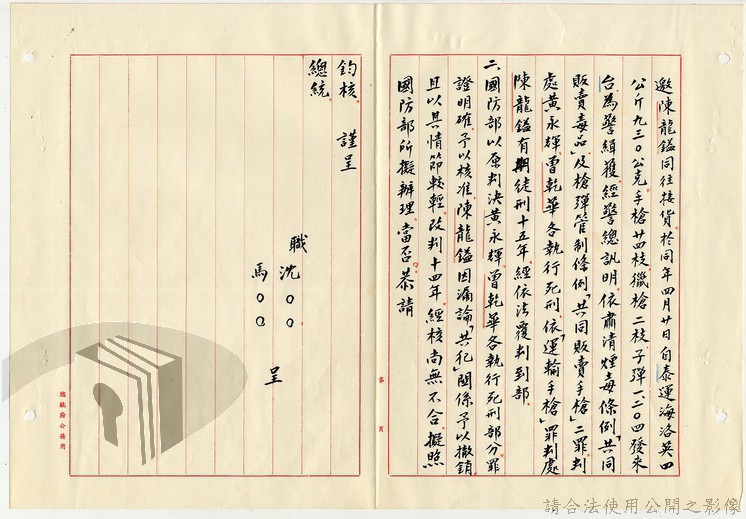 邀陳龍鎰同往接貨於同年四月廿日自泰運海洛英四
公斤九三〇公克手槍廿四枝獵槍二枝子彈一、二〇四發來
台為警緝獲經警總訊明依肅清煙毒條例「共同
販賣毒品」及槍彈管制條例「共同販賣手槍」二罪判
處黃永輝曾乾華各執行死刑依「運輸手槍」罪判處
陳龍鎰有期徒刑十五年經依法覆判到部
二、國防部以原判決黃永輝曾乾華各執行死刑部分罪
證明確予以核准陳龍鎰因漏論「共犯」關係予以撤銷
且以其情節較輕改判十四年經核尚無不合擬照
國防部所擬辦理當否恭請
鈞核 謹呈
總統
職沈〇〇
馬〇〇 呈
第 頁
總統府公務用
請合法使用公開之影像